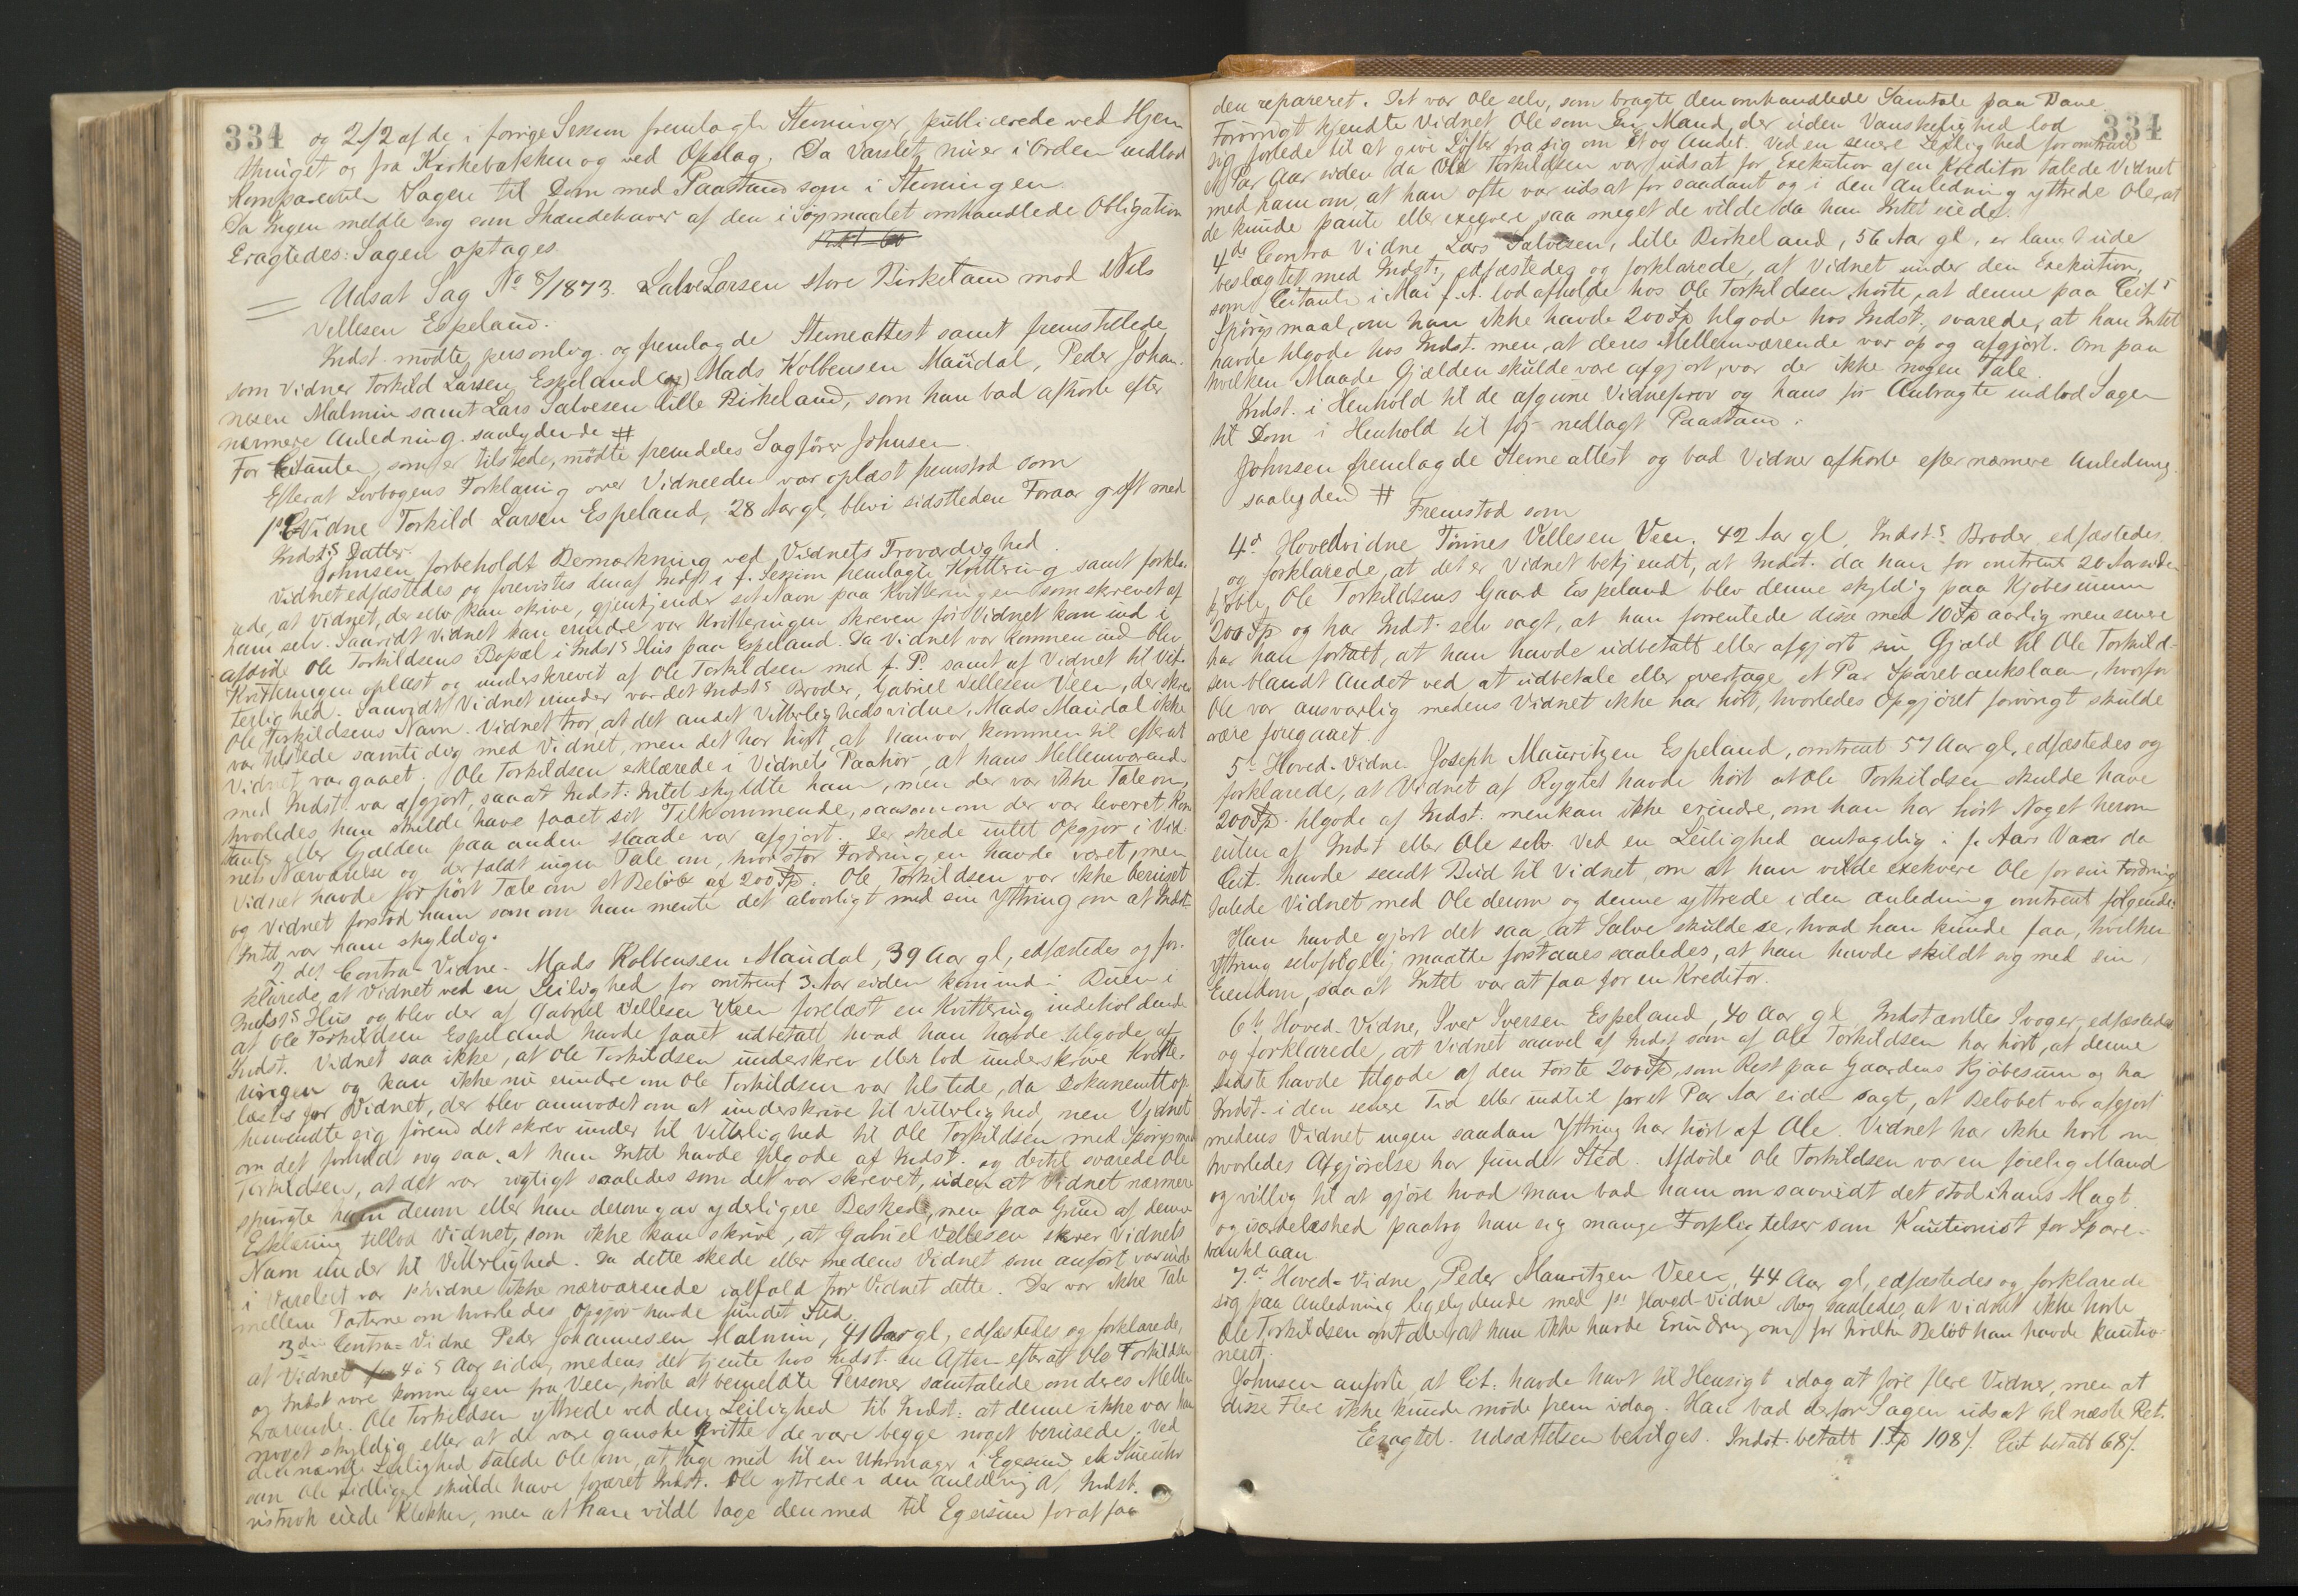 334
og 2/2 af de i forrige Session fremlagte Stevninger, publicerede ved Hjem
thinget og fra Kirkebakken og ved Opslag. Da Varslet nu er i Orden indlod
Komparenten Sagen til Dom med Paastand som i Stevningen
Da Ingen meldte sig som Ihændehaver af den i Søgsmaalet omhandlede Obligation
Eragtedes: Sagen optages.
Udsat Sag No 8/1873. Salve Larsen store Birkeland mod Nils
Vellesen Espeland.
Indst. mødte personlig og fremlagde Stevneattest samt fremstillede
som Vidner Torkild Larsen Espeland (og) Mads Kolbensen Maudal, Peder Johan-
nesen Malmin samt Lars Salvesen lille Birkeland, som han bad afhørte efter
nærmere Anledning. saalydende #
For Citanten, som er tilstede, mødte fremdeles Sagfører Johnsen.
Efterat Lovbogens Forklaring over Vidneeden var oplæst fremstod som
1ste C. Vidne Torkild Larsen Espeland, 28 Aar gl, blev i sidstleden Foraar gift med
Indsts Datter.
Johnsen forbeholdt Bemærkning ved Vidnets Troværdighed.
Vidnet edfæstedes og forevistes den af Indst i f. Session fremlagte Kvittering samt forkla-
rede, at Vidnet, der selv kan skrive, gjenkjender sit Navn paa Kvitteringen som skrevet af
ham selv. Saavidt Vidnet kan erindre var Kvitteringen skreven før Vidnet kom ind i
afdøde Ole Torkildsens Bopæl i Indsts Hus paa Espeland. Da Vidnet var kommen ind blev
Kvitteringen oplæst og underskrevet af Ole Torkildsen med f. P. samt af Vidnet til Vit-
terlighed. Saavidt Vidnet erindrer var det Indsts Broder, Gabriel Vellesen Veen, der skrev
Ole Torkildsens Navn. Vidnet tror, at det andet Vitterlighedsvidne, Mads Maudal ikke
var tilstede samtidig med Vidnet, men det har hørt, at han var kommen til efterat
Vidnet var gaaet. Ole Torkildsen erklærede i Vidnets Paahør, at hans Mellemværende
med Indst. var afgjort, saaat Indst. Intet skyldte ham, men der var ikke Tale om,
hvorledes han skulde have faaet sit Tilkommende, saasom om der var leveret Kon-
tanter eller Gjælden paa anden Maade var afgjort. Der skede intet Opgjør i Vid-
nets Nærværelse og der faldt ingen Tale om, hvor stor Fordringen havde været, men
Vidnet havde før hørt Tale om et Beløb af 200 Sp. Ole Torkildsen var ikke beruset
og Vidnet forstod ham som om han mente det alvorligt med sin Yttring om at Indst
Intet var ham skyldig.
2det Contra-Vidne. Mads Kolbensen Maudal, 39 Aar gl, edfæstedes og for-
klarede, at Vidnet ved en Leilighed for omtrent 3 Aar siden kom ind i Buen i
Indsts Hus og blev der af Gabriel Vellesen Veen forelæst en Kvittering indeholdende
at Ole Torkildsen Espeland havde faaet udbetalt hvad han havde tilgode af
Indst. Vidnet saa ikke, at Ole Torkildsen underskrev eller lod underskrive Kvitte-
ringen og kan ikke nu erindre om Ole Torkildsen var tilstede, da Dokumentet op-
læstes for Vidnet, der blev anmodet om at underskrive til Vitterlighed, men Vidnet
henvendte sig førend det skrev under til Vitterlighed til Ole Torkildsen med Spørgsmaal
om det forholdt sig saa, at han Intet havde tilgode af Indst. og dertil svarede Ole
Torkildsen, at det var rigtigt saaledes som det var skrevet, uden at Vidnet nærmere
spurgte ham derom eller han derom gav yderligere Besked, men paa Grund af denne
Erklæring tillod Vidnet, som ikke kan skrive, at Gabriel Vellesen skrev Vidnets
Navn under til Vitterlighed. Da dette skede eller medens Vidnet som anført var inde
i Værelset var 1ste Vidne ikke nærværende ialfald tror Vidnet dette. Der var ikke Tale
mellem Parterne om hvorledes Opgjør havde fundet Sted.
3die Contra-Vidne Peder Johannesen Malmin, 41 Aar gl, edfæstedes og forklarede,
at Vidnet for 4 à 5 Aar siden, medens det tjente hos Indst. en Aften efterat Ole Torkildsen
og Indst vare komne hjem fra Veen, hørte at bemeldte Personer samtalede om deres Mellem-
værende. Ole Torkildsen yttrede ved den Leilighed til Indst. at denne ikke var ham
noget skyldig eller at de vare ganske kvitte de vare begge noget berusede. Ved
den nævnte Leilighed talede Ole om, at tage med til en Uhrmager i Egersund et Stueuhr
som Ole tidligere skulde have foræret Indst. Ole yttrede i den Anledning at Indst.
vistnok eiede Klokken, men at han vilde tage den med til Egersund for at faa
334
den repareret. Det var Ole selv, som bragte den omhandlede Samtale paa Bane.
Forøvrigt kjendte Vidnet Ole som en Mand, der uden Vanskelighed lod
sig forlede til at give Løfter fra sig om Et og Andet. Ved en senere Leilighed for omtrent
et Par Aar siden da Ole Torkildsen var udsat for Exekution af en Kreditor talede Vidnet
med ham om, at han ofte var udsat for saadant og i den Anledning yttrede Ole, at
de kunde pante eller exeqvere saa meget de vilde da han Intet eiede.
4de Contra Vidne Lars Salvesen, lille Birkeland, 56 Aar gl, er langt ude
beslægtet med Indst., edfæstedes og forklarede, at Vidnet under den Exekution,
som Citanten i Mai f. A. lod afholde hos Ole Torkildsen hørte, at denne paa Cits
Spørgsmaal, om han ikke havde 200 Sp tilgode hos Indst., svarede, at han Intet
havde tilgode hos Indst. men, at deres Mellemværende var op og afgjort. Om paa
hvilken Maade Gjælden skulde være afgjort, var der ikke nogen Tale.
Indst. i Henhold til de afgivne Vidneprov og hans før Anbragte indlod Sagen
til Dom i Henhold til før nedlagt Paastand.
Johnsen fremlagde Stevneattest og bad Vidner afhørte efter nærmere Anledning.
saalydend #
Fremstod som
4de Hovedvidne Tønnes Vellesen Veen, 42 Aar gl, Indsts Broder, edfæstedes
og forklarede, at det er Vidnet bekjendt, at Indst. da han for omtrent 20 Aar siden
kjøbte Ole Torkildsens Gaard Espeland blev denne skyldig paa Kjøbesummen
200 Sp og har Indst. selv sagt, at han forrentede disse med 10 Sp aarlig men senere
har han fortalt, at han havde udbetalt eller afgjort sin Gjæld til Ole Torkild-
sen blandt Andet ved at udbetale eller overtage et Par Sparebankslaan, hvorfor
Ole var ansvarlig medens Vidnet ikke har hørt, hvorledes Opgjøret forøvrigt skulde
være foregaaet.
5te Hoved-Vidne Joseph Mauritzen Espeland, omtrent 57 Aar gl, edfæstedes og
forklarede, at Vidnet af Rygtet havde hørt at Ole Torkildsen skulde have
200 Sp. tilgode af Indst. men kan ikke erindre, om han har hørt Noget herom
enten af Indst eller Ole selv. Ved en Leilighed antagelig i f. Aars Vaar da
Cit. havde sendt Bud til Vidnet, om at han vilde exekvere Ole for sin Fordring
talede Vidnet med Ole derom og denne yttrede i den Anledning omtrent følgende:
Han havde gjort det saa, at Salve skulde se, hvad han kunde faa, hvilken
Yttring selvfølgelig maatte forstaaes saaledes, at han havde skildt sig med sin
Eiendom, saa at Intet var at faa for en Kreditor.
6te Hoved-Vidne, Iver Iversen Espeland, 40 Aar gl, Indstævntes Svoger, edfæstedes
og forklarede, at Vidnet saavel af Indst som af Ole Torkildsen har hørt, at denne
Sidste havde tilgode af den Første 200 Sp, som Rest paa Gaardens Kjøbesum og har
Indst. i den senere Tid eller indtil for et Par Aar siden sagt, at Beløbet var afgjort
medens Vidnet ingen saadan Yttring har hørt af Ole. Vidnet har ikke hørt om
hvorledes Afgjørelse har fundet Sted. Afdøde Ole Torkildsen var en føielig Mand
og villig til at gjøre hvad man bad ham om saavidt det stod i hans Magt
og isærdeleshed paatog han sig mange Forpligtelser som Kautionist for Spare-
banklaan.
7de Hoved-Vidne, Peder Mauritzen Veen, 44 Aar gl, edfæstedes og forklarede
sig paa Anledning ligelydende med 1ste Hoved-Vidne dog saaledes, at Vidnet ikke hørte
Ole Torkildsen omtale, at han ikke havde Erindring om for hvilke Beløb han havde kautio-
neret.
Johnsen anførte, at Cit. havde havt til Hensigt idag at føre flere Vidner, men at
disse Flere ikke kunde møde frem idag. Han bad derfor Sagen udsat til næste Ret.
Eragtet. Udsættelsen bevilges. Indst. betalt 1 Sp 108 /. Cit betalt 68 /.